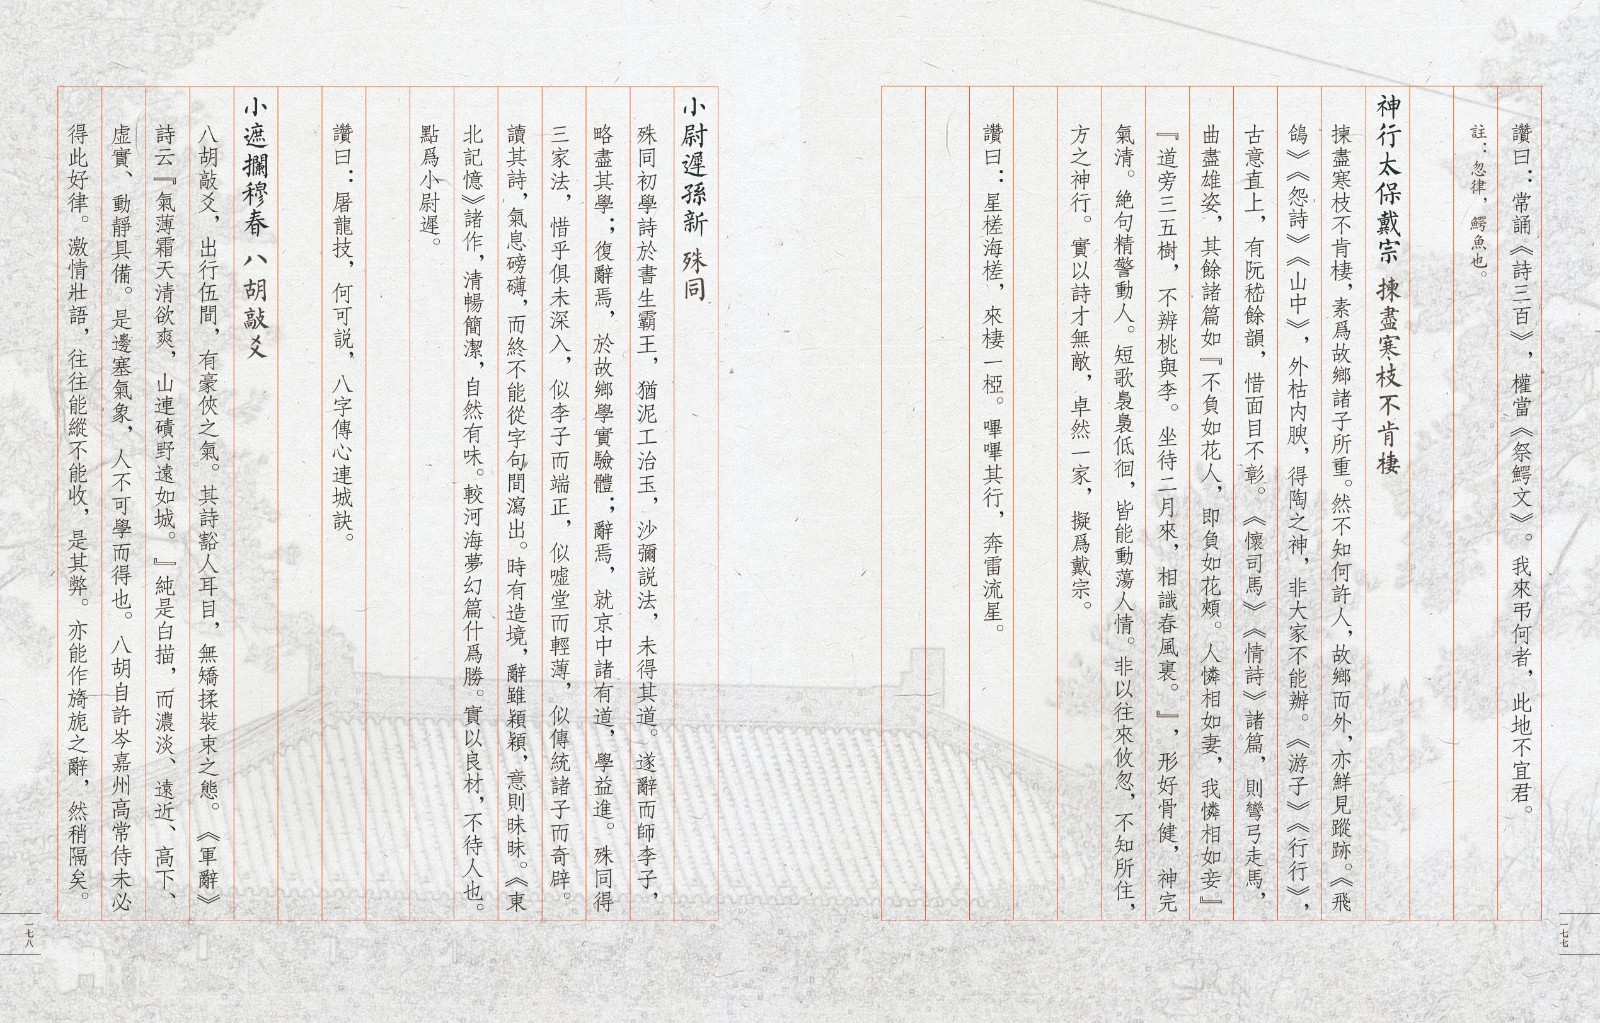 讚曰：常誦《詩三百》，權當《祭鰐文》。我來弔何者，此地不宜君。
註：忽律，鰐魚也。
神行太保戴宗 揀盡寒枝不肯棲
揀盡寒枝不肯棲，素爲故鄉諸子所重。然不知何許人，故鄉而外，亦鮮見蹤跡。《飛
鴿》《怨詩》《山中》，外枯内腴，得陶之神，非大家不能辦。《游子》《行行》，
古意直上，有阮嵇餘韻，惜面目不彰。《懷司馬》《情詩》諸篇，則彎弓走馬，
曲盡雄姿，其餘諸篇如『不負如花人，即負如花頰。人憐相如妻，我憐相如妾』
『道旁三五樹，不辨桃與李。坐待二月來，相識春風裏。』，形好骨健，神完
氣清。絶句精警動人。短歌裊裊低徊，皆能動蕩人情。非以往來攸忽，不知所住，
方之神行。實以詩才無敵，卓然一家，擬爲戴宗。
讚曰：星槎海槎，來棲一椏。嗶嗶其行，奔雷流星。
一七七
小尉遲孫新 殊同
殊同初學詩於書生霸王，猶泥工治玉，沙彌説法，未得其道。遂辭而師李子，
略盡其學；復辭焉，於故鄉學實驗體；辭焉，就京中諸有道，學益進。殊同得
三家法，惜乎俱未深入，似李子而端正，似噓堂而輕薄，似傳統諸子而奇辟。
讀其詩，氣息磅礴，而終不能從字句間瀉出。時有造境，辭雖穎穎，意則昧昧。《東
北記憶》諸作，清暢簡潔，自然有味。較河海夢幻篇什爲勝。實以良材，不待人也。
點爲小尉遲。
讚曰：屠龍技，何可説，八字傳心連城訣。
小遮攔穆春 八胡敲爻
八胡敲爻，出行伍間，有豪俠之氣。其詩豁人耳目，無矯揉裝束之態。《軍辭》
詩云『氣薄霜天清欲爽，山連磧野遠如城。』純是白描，而濃淡、遠近、高下、
虛實、動靜具備。是邊塞氣象，人不可學而得也。八胡自許岑嘉州高常侍未必
得此好律。激情壯語，往往能縱不能收，是其弊。亦能作旖旎之辭，然稍隔矣。
一七八